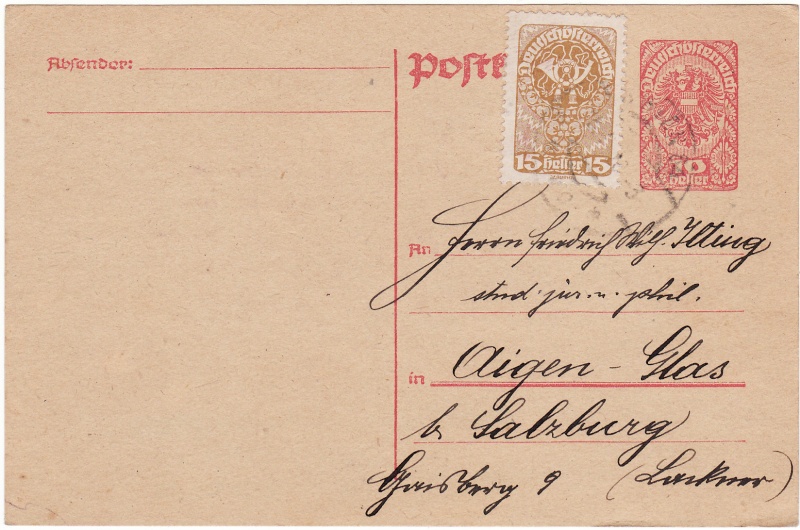 Absender:
Postk
Deutschösterreich
15 Heller 15
Deutschösterreich
10
Heller
An Herrn Friedrich Wilh. Illing
stud. jur. u. phil.
in Aigen - Glas
b. Salzburg
Gaisberg 9 (Lackner)